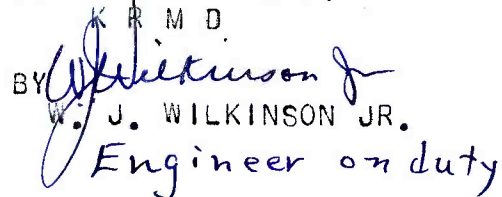 K R M D
BY W J Wilkinson Jr
W. J. WILKINSON JR.
Engineer on duty